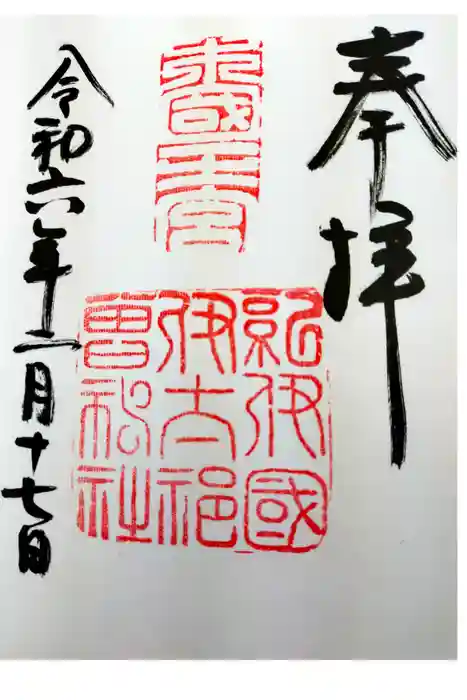 奉拝
木國王宮
紀伊國
伊太祁
曽神社
令和六年二月十七日